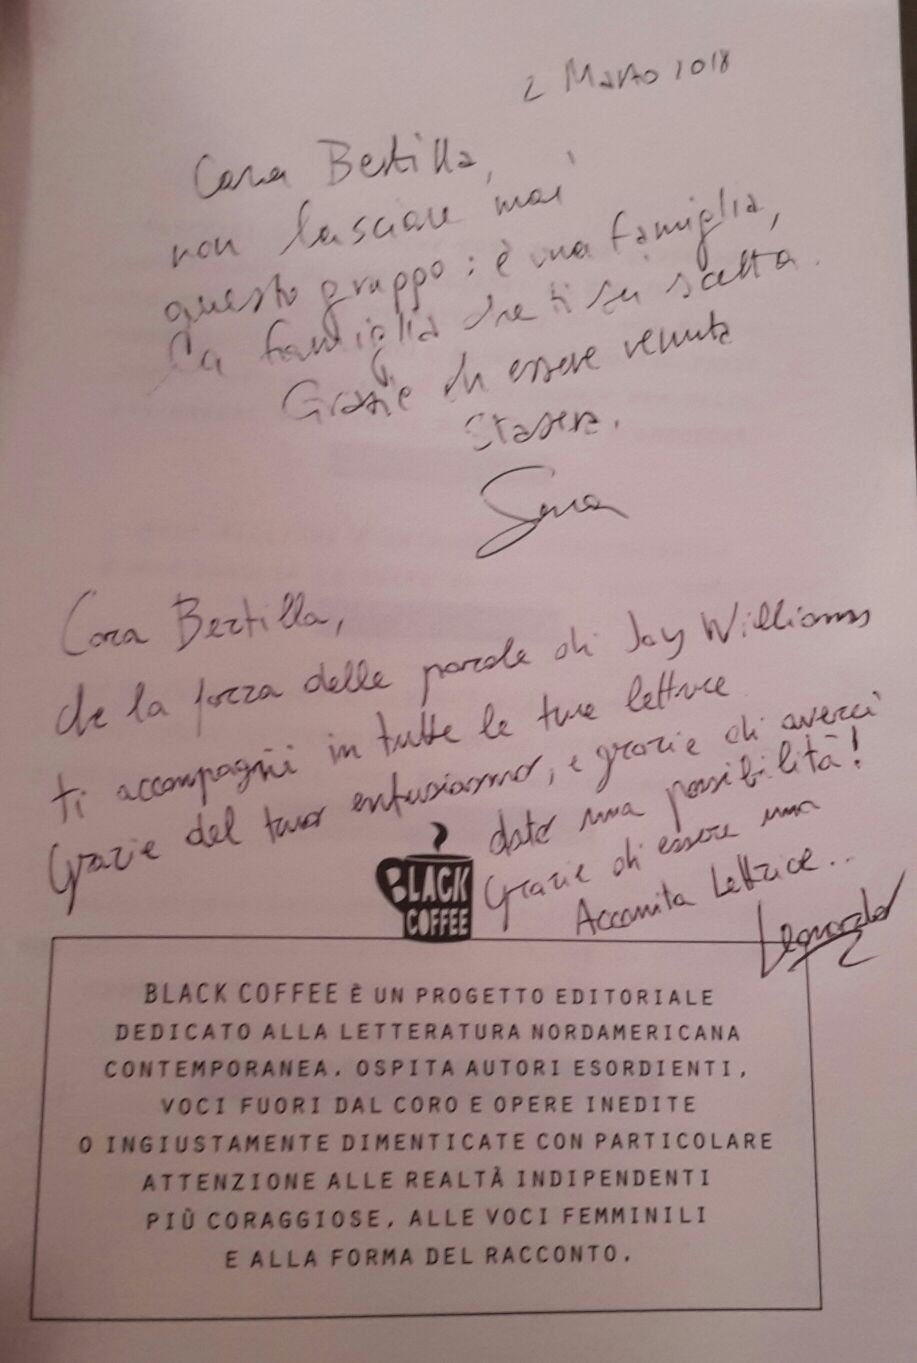 2 Marzo 2018
Cara Bertilla,
non lasciare mai
questo gruppo: è una famiglia,
la famiglia che ti sei scelta.
Grazie di essere venuta
stasera.
Sara
Cara Bertilla,
che la forza delle parole di Joy Williams
ti accompagni in tutte le tue letture
Grazie del tuo entusiasmo, e grazie di averci
dato una possibilità!
Grazie di essere una
Accanita Lettrice...
Leonardo
BLACK
COFFEE
BLACK COFFEE È UN PROGETTO EDITORIALE
DEDICATO ALLA LETTERATURA NORDAMERICANA
CONTEMPORANEA. OSPITA AUTORI ESORDIENTI,
VOCI FUORI DAL CORO E OPERE INEDITE
O INGIUSTAMENTE DIMENTICATE CON PARTICOLARE
ATTENZIONE ALLE REALTÀ INDIPENDENTI
PIÙ CORAGGIOSE, ALLE VOCI FEMMINILI
E ALLA FORMA DEL RACCONTO.